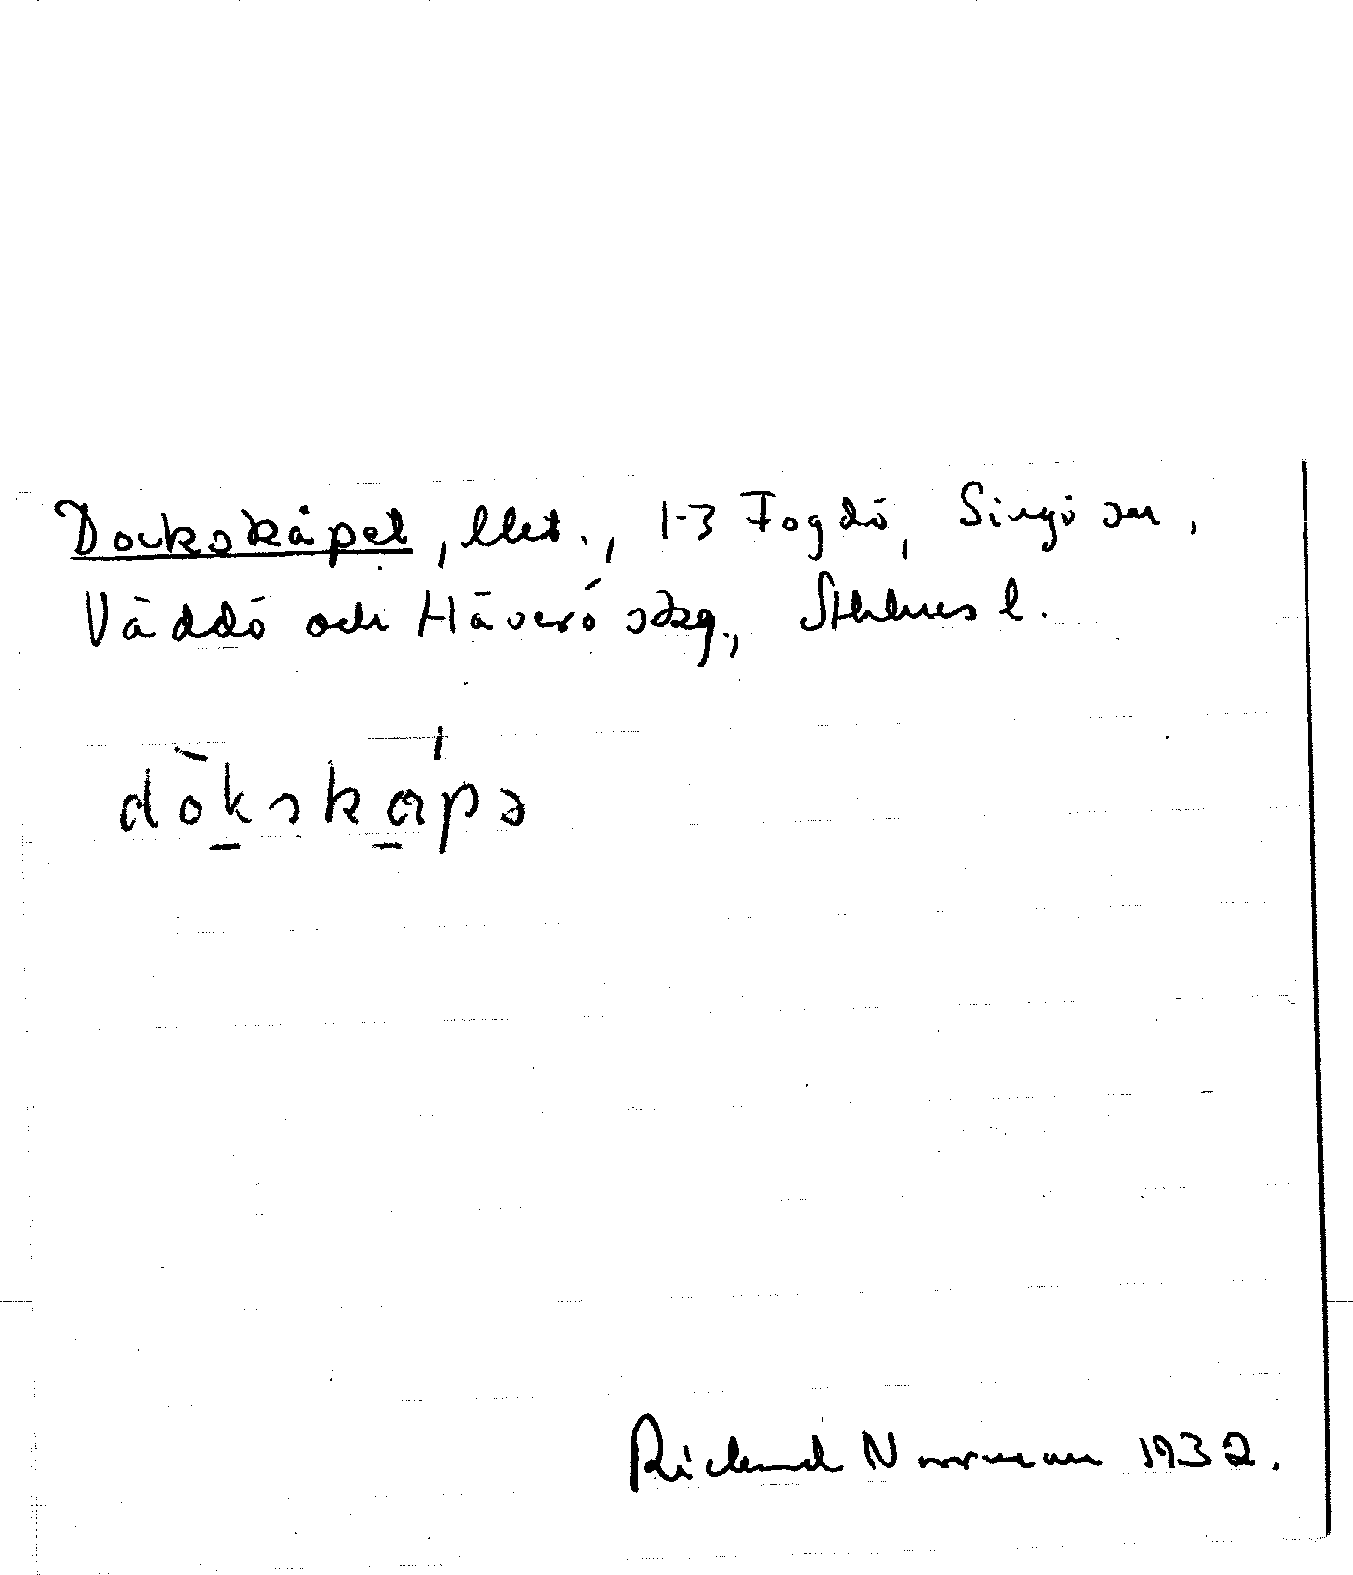 Dockskåpet, llet., 1-3 Fogdö, Singö sn,
Väddö och Häverö skg., Sthlms l.
dòkskápə
Rickard Norrman 1932.